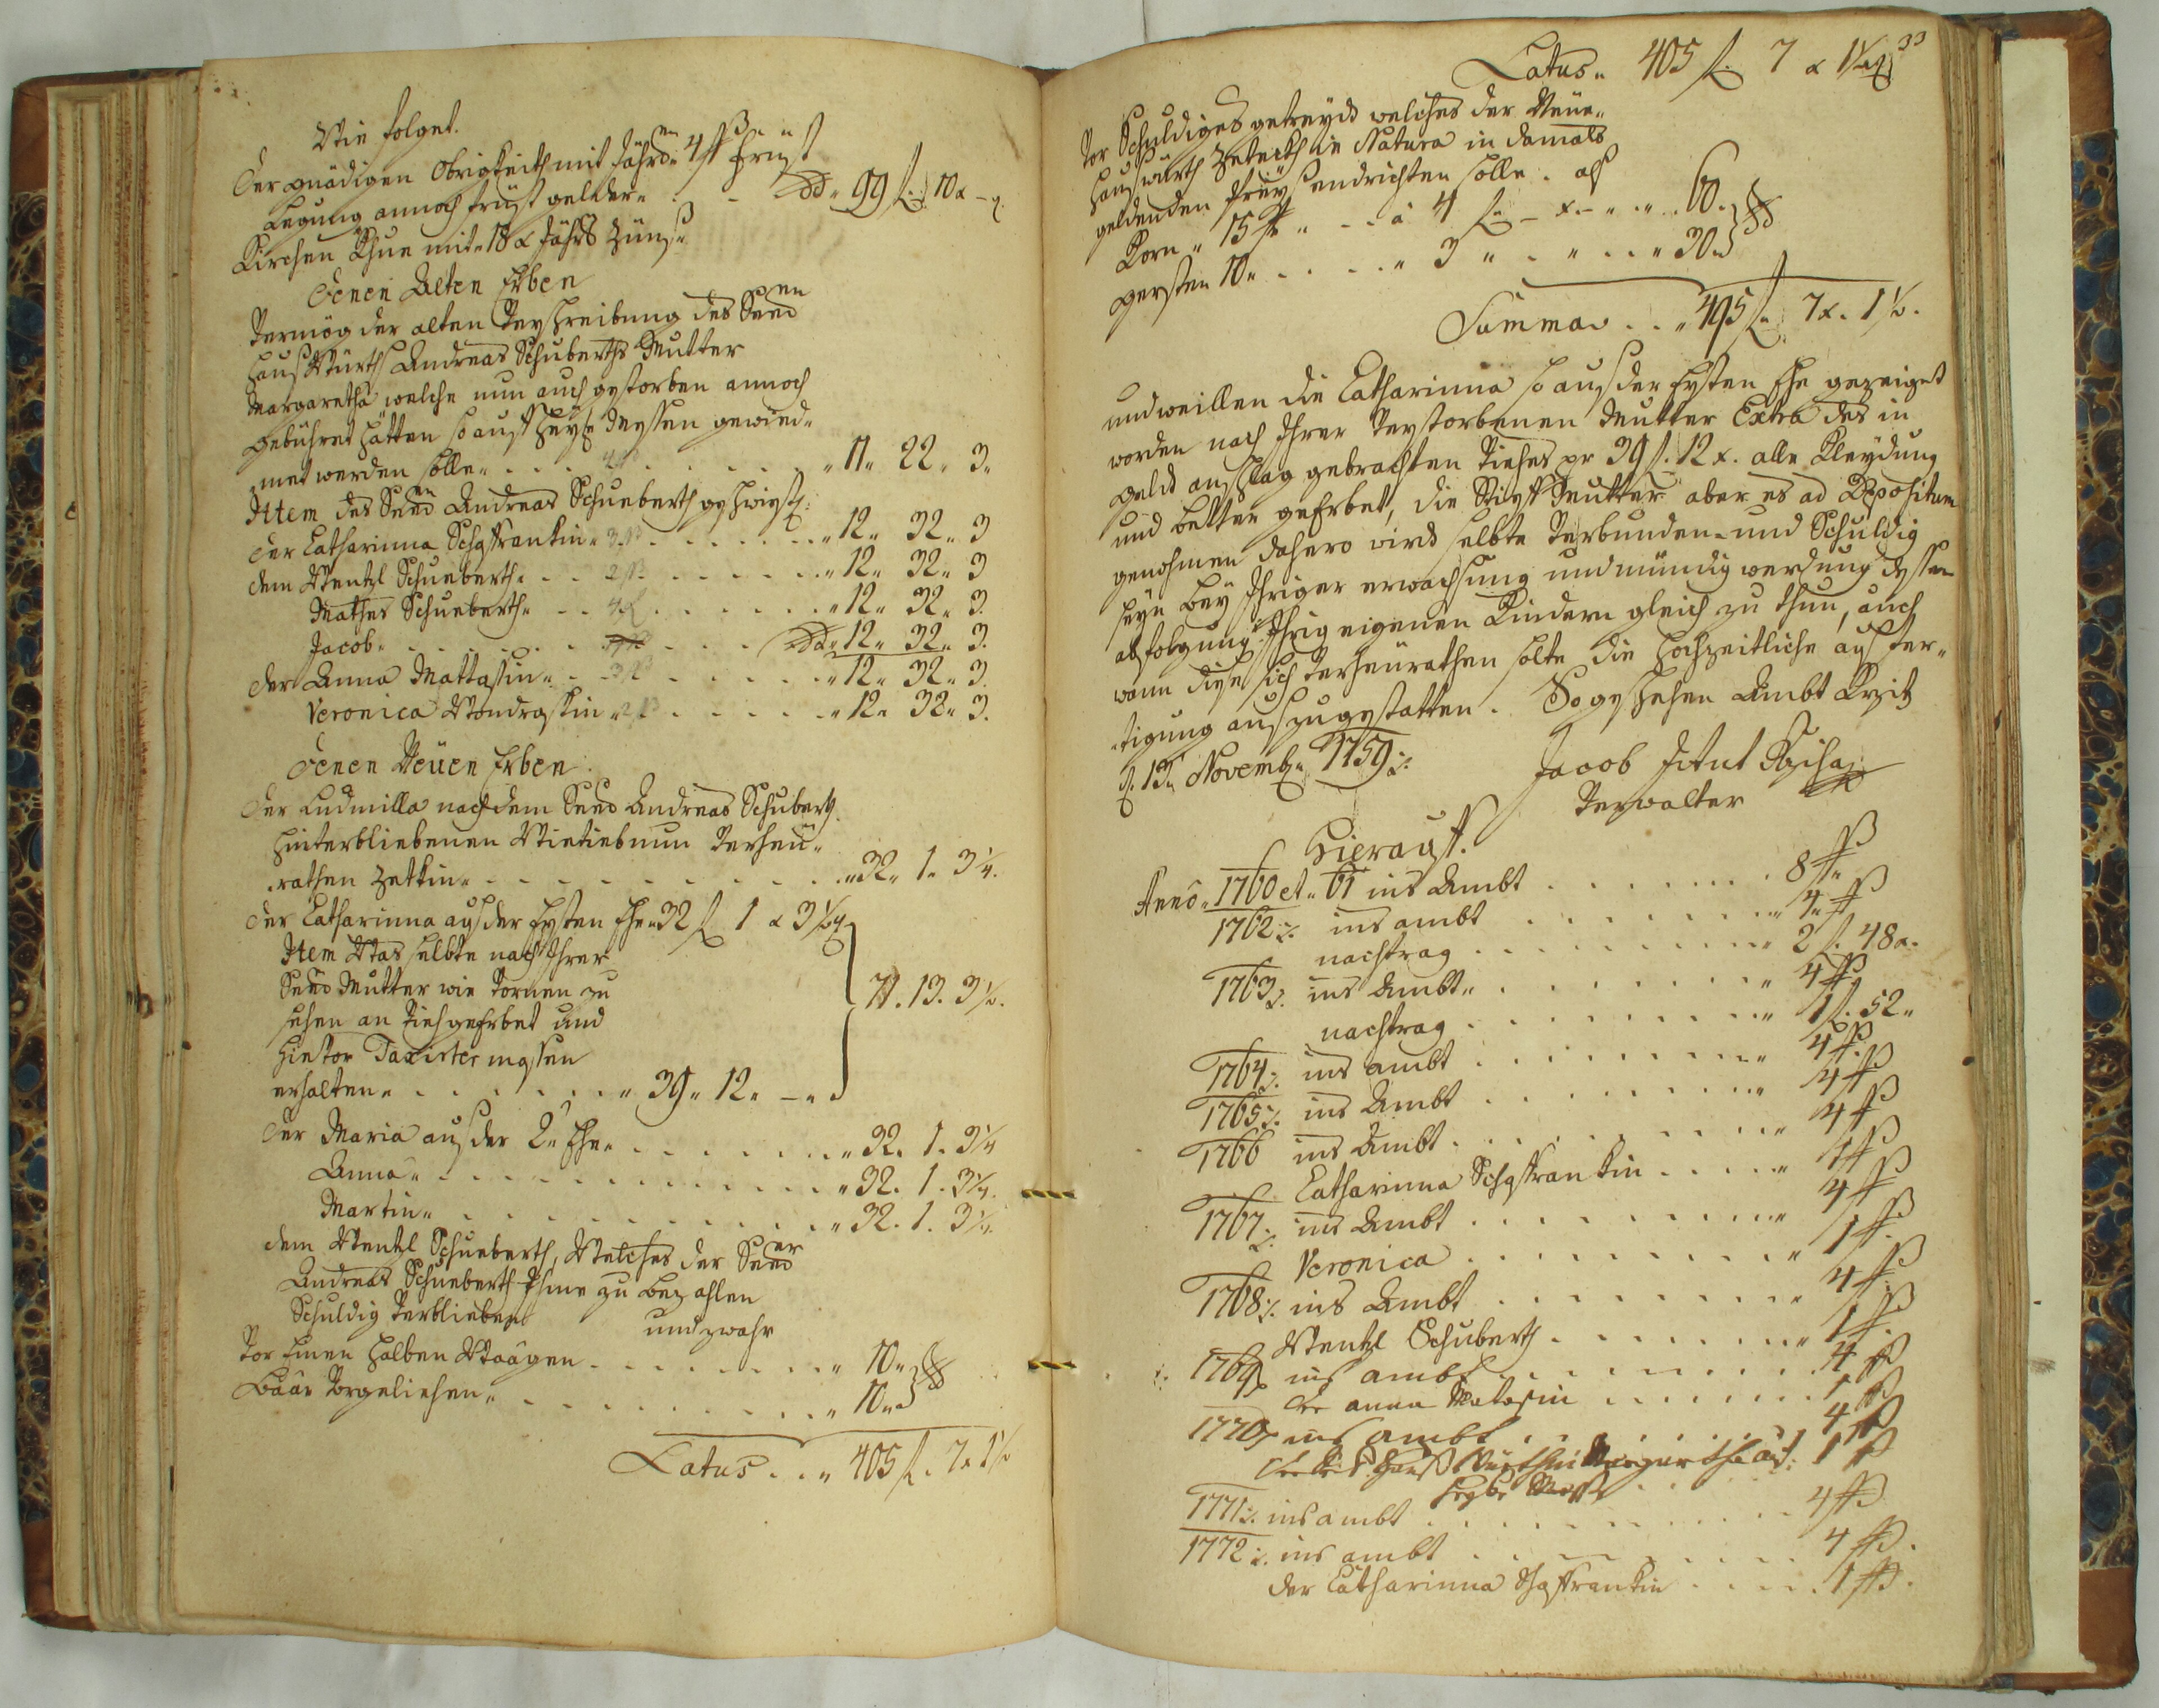 Wie folget.
Der gnädigen Obrigkeith mit Jährl: 4 ß frist
Legung annoch frist gelder. - dd. 99 f. 10 x -
Kirchen Khue mit 18 x Jährl: Zünß.
Denen Alten Erben
Vermög der alten Verschreibung des Seeл
Hauß Würth Andreas Schuberths Mutter
Margaretha welche nun auch gestorben annoch
gebühret hätten so auff heyl: Messen gewied-
met werden solle 11. 22. 3.
Item des Seel: Andreas Schueberth geschwist:
Der Catharinna Schestrankin 12. 32. 3
dem Wentzl Schueberth 12. 32. 3
Mathes Schueberth 12. 32. 3.
Jacob dd. 12. 32. 3.
der Anna Mattaßin 12. 32. 3.
Veronica Wondraßkin 12. 32. 3.
Denen Neuen Erben.
Der Ludmilla nach dem Seel: Andreas Schuberth
hinterbliebenen Wietib nun Verheü-
rathen Zettin 32. 1. 3 1/4.
der Catharinna auß der Ersten Ehe 32 f 1 x 3 1/4
Item Was selbte nach Ihrer
Seel: Mutter wie Vornen zu
sehen an Vieh geerbet und
hievor Taxirter massen
erhalten 39. 12. - 71. 13. 3 1/4.
der Maria auß der 2. Ehe 32. 1. 3 1/4
Anna 32. 1. 3 1/4.
Martin 32. 1. 3 1/4.
dem Wentzl Schueberth, Welches der Seel:
Andreas Schueberth Ihme zu bezahlen
Schuldig Verblieben und zwahr
Vor Einen halben Waagen 10.
Baar Vorgeliehen 10.
Latus 405 f. 7 x 1 1/4
33
Latus 405 f. 7 x 1 1/4
Vor Schuldiges getreyd welches der Neue
Haußwürth in Natura in damals
geldenden Preyß endrichten solle. alß
Korn 15 à 4 f - x 60.
Gersten 10 3 30.
Summa 495 f. 7 x. 1 1/4.
und weillen die Catharinna so auß der Ersten Ehe gezeiget
worden nach Ihrer Verstorbenen Mutter Extra des in
geld anschlag gebrachten Viehes pr 39 f. 12 x. alle Kleydung
und better geerbet, die Stieff Mutter aber es ad Depositum
genohmen dahero wird selbte Verbunden und Schuldig
seyn bey Ihriger erwachsung und mündig werdung dessen
abfolgung Ihrig eigenen Kindern gleich zu thun, auch
wann diese sich Verheurathen solte die hochzeitliche auß fer-
tigung außzugestatten. So geschehen Ambt
d. 13. Novemb. 1759
Jacob
Verwalter
Hierauff.
Anno 1760 et 61 ins Ambt 8 ß
1762 ins ambt 4 ß
nachtrag 2 f. 48 x.
1763 ins Ambt 4 ß
nachtrag 1 f. 52
1764 ins ambt 4 ß
1765 ins Ambt 4 ß
1766 ins Ambt 4 ß
Catharinna Schestrankin 1 ß
1767 ins Ambt 4 ß
Veronica 1 ß
1768 ins Ambt 4 ß
Wentzl Schuberth 1 ß
1769 ins ambt 4 ß
der anna Matasin 1 ß
1770 ins ambt 4 ß
Hauß Würthin Margaretha 1 ß
1771 ins ambt 4 ß
1772 ins ambt 4 ß.
der Catharinna Schestrankin 1 ß.